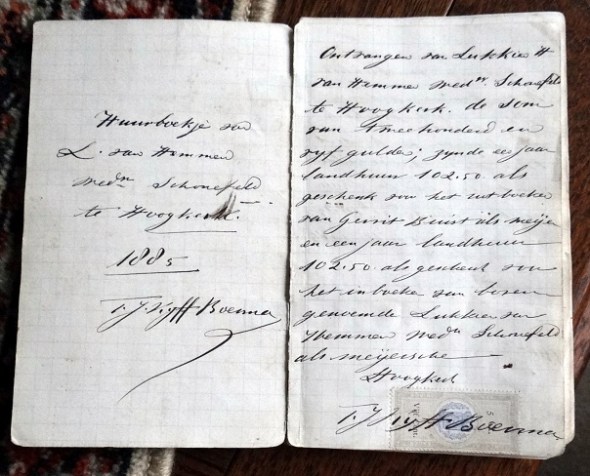 Huurboekje van
L. van Hemmen
wedn Schonefeld
te Hoogkerk.
1885
Ontvangen van Lukkien H
van Hemmen wedn. Schonefeld
te Hoogkerk. de som
van tweehonderd en
vyf gulden; zynde een jaar
landhuur 102.50 als
geschenk van het uit boeken
van Gerrit Buist als meijer
en een jaar landhuur
102.50. als geschenk van
het inboeken van boven
genoemde Lukkien van
Hemmen wedn Schonefeld
als meijersche
Hoogkerk